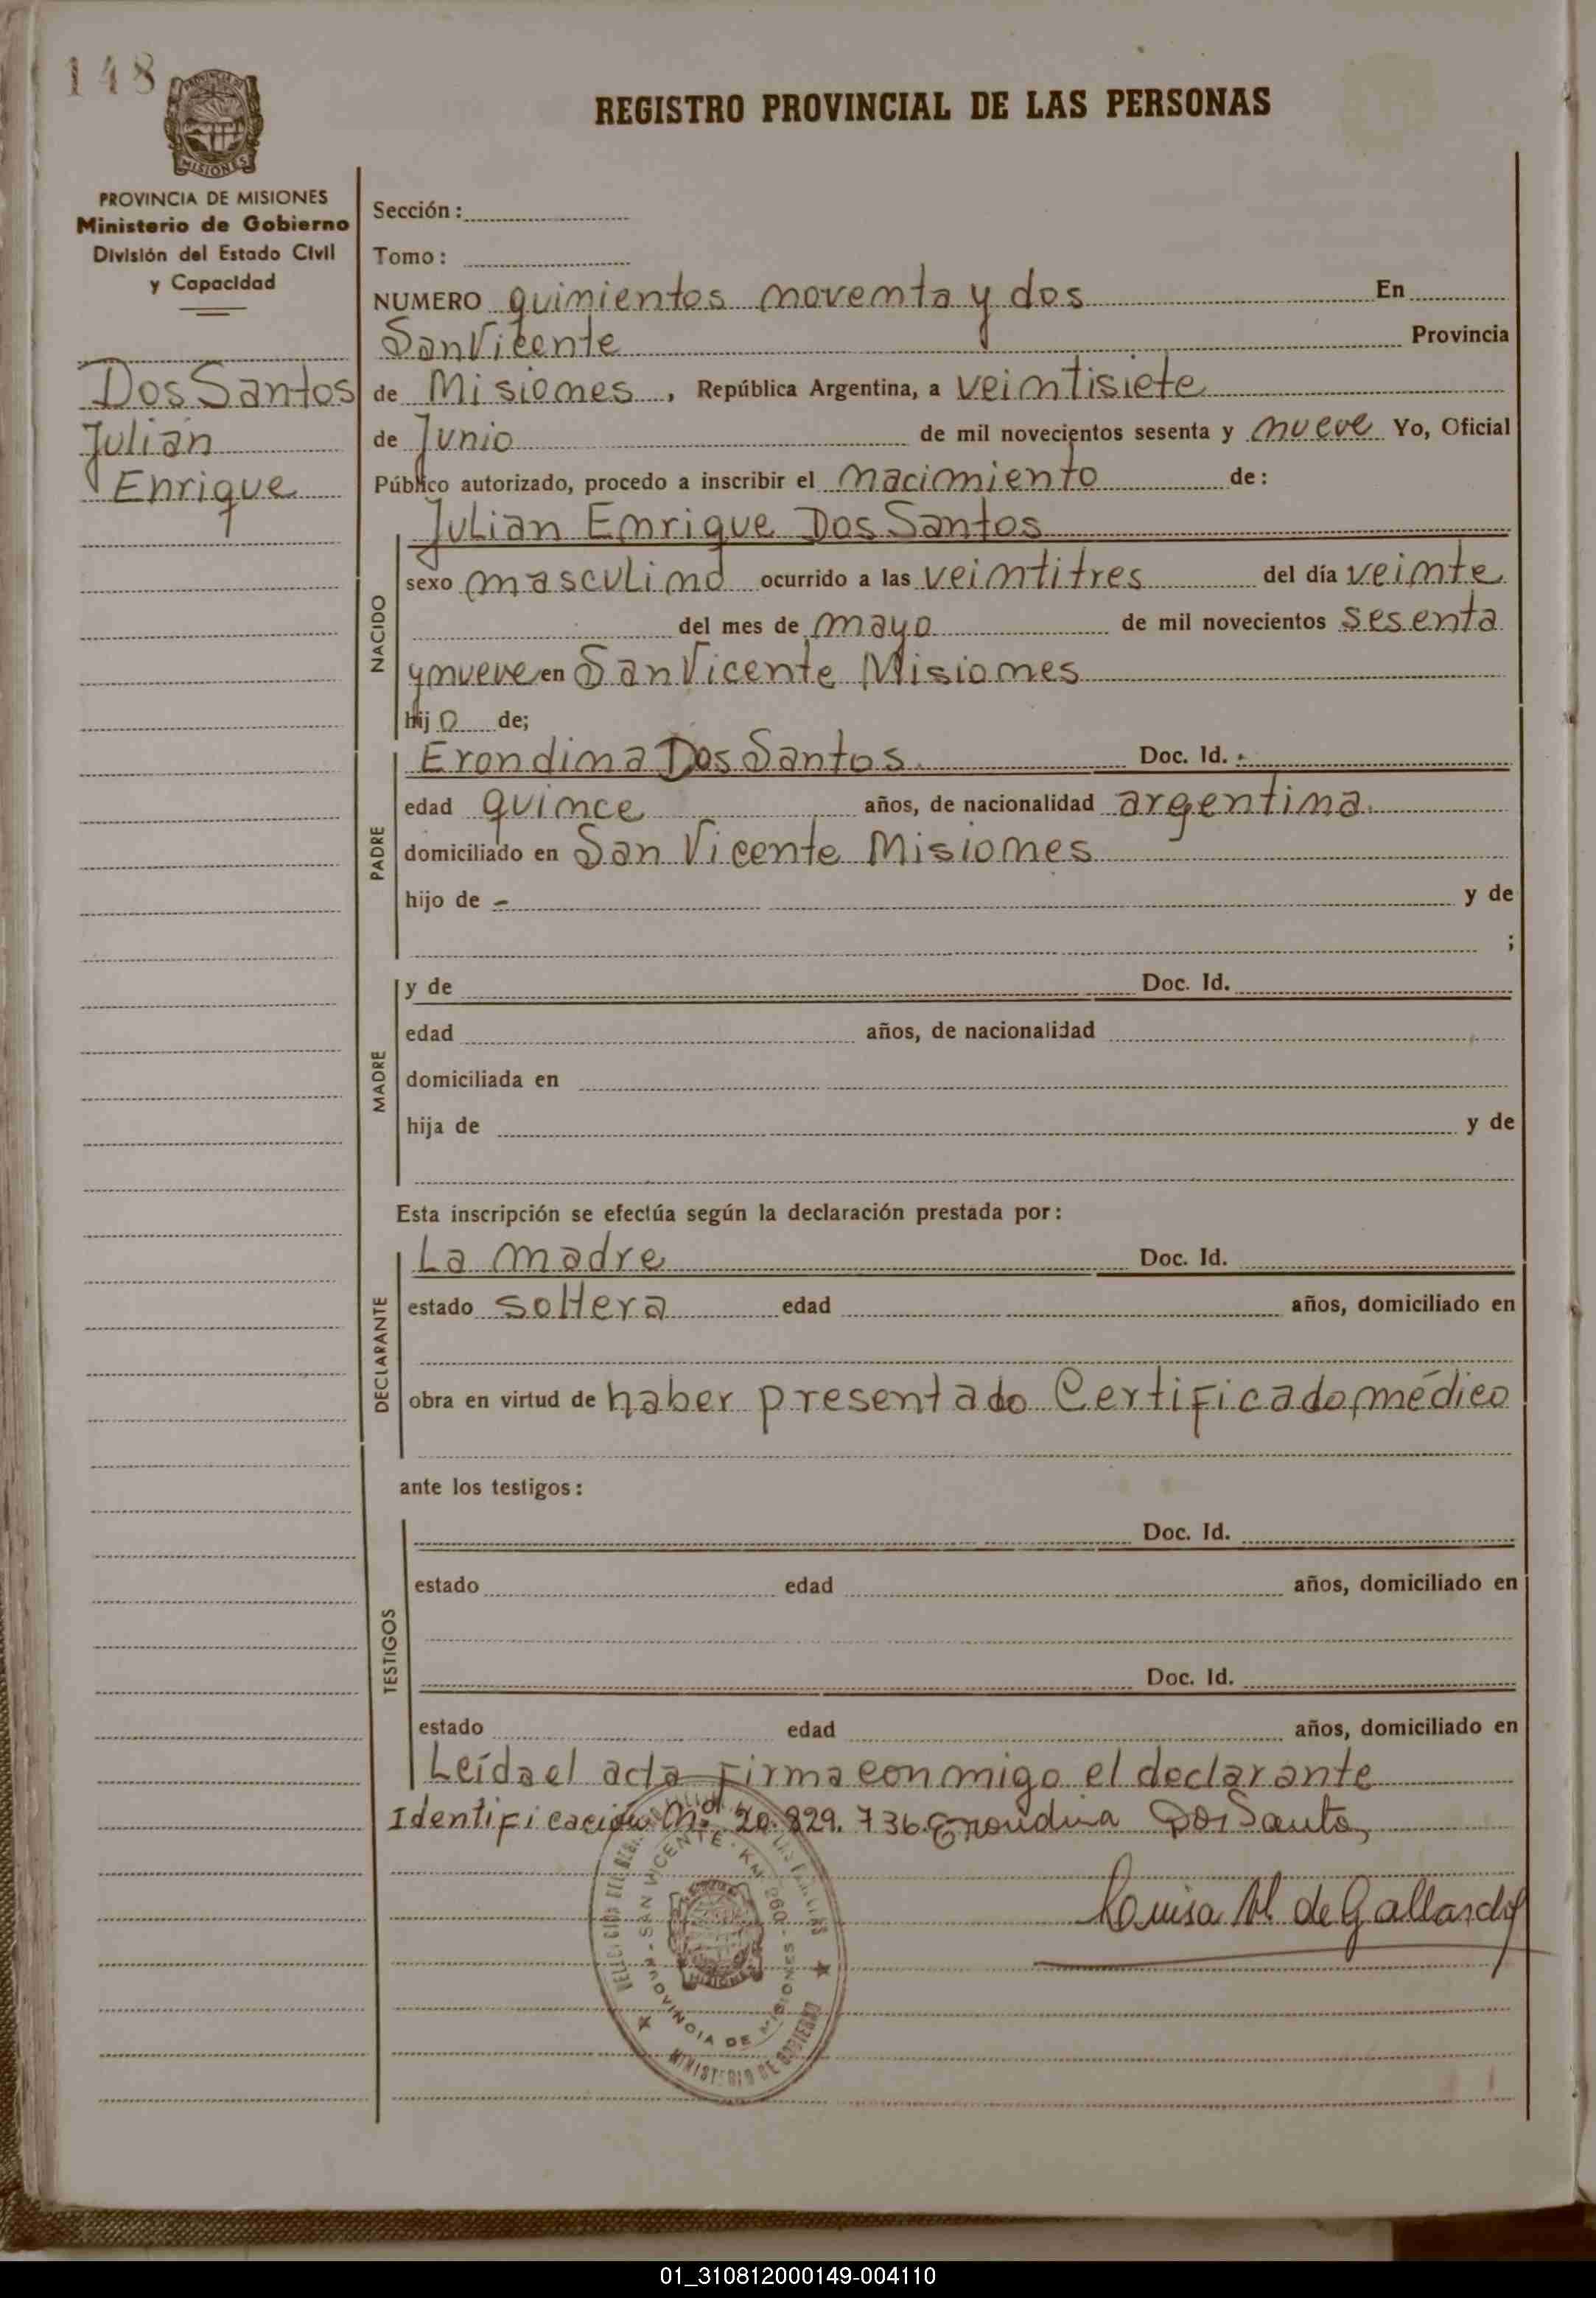 148
PROVINCIA DE MISIONES
Ministerio de Gobierno
División del Estado Civil
y Capacidad
Dos Santos
Julian
Enrique
REGISTRO PROVINCIAL DE LAS PERSONAS
Sección:
Tomo:
NUMERO quinientos noventa y dos En
San Vicente Provincia
de Misiones, República Argentina, a veintisiete
de Junio de mil novecientos sesenta y nueve Yo, Oficial
Público autorizado, procedo a inscribir el nacimiento de:
NACIDO
Julian Enrique Dos Santos
sexo masculino ocurrido a las veintitres del día veinte
del mes de mayo de mil novecientos sesenta
y nueve en San Vicente Misiones
hijo de;
PADRE
Erondina Dos Santos. Doc. Id. -
edad quince años, de nacionalidad argentina.
domiciliado en San Vicente Misiones
hijo de - y de
;
MADRE
y de Doc. Id.
edad años, de nacionalidad
domiciliada en
hija de y de
Esta inscripción se efectúa según la declaración prestada por:
DECLARANTE
La madre Doc. Id.
estado soltera edad años, domiciliado en
obra en virtud de haber presentado Certificado, médico
ante los testigos:
TESTIGOS
Doc. Id.
estado edad años, domiciliado en
Doc. Id.
estado edad años, domiciliado en
Leída el acta firma conmigo el declarante
Identificación Nº 20.829.736. Erondina Dos Santos
Louisa M. de Gallardo
SAN VICENTE - KM 260 -
PROVINCIA DE MISIONES
MINISTERIO DE GOBIERNO
MISIONES
01_310812000149-004110